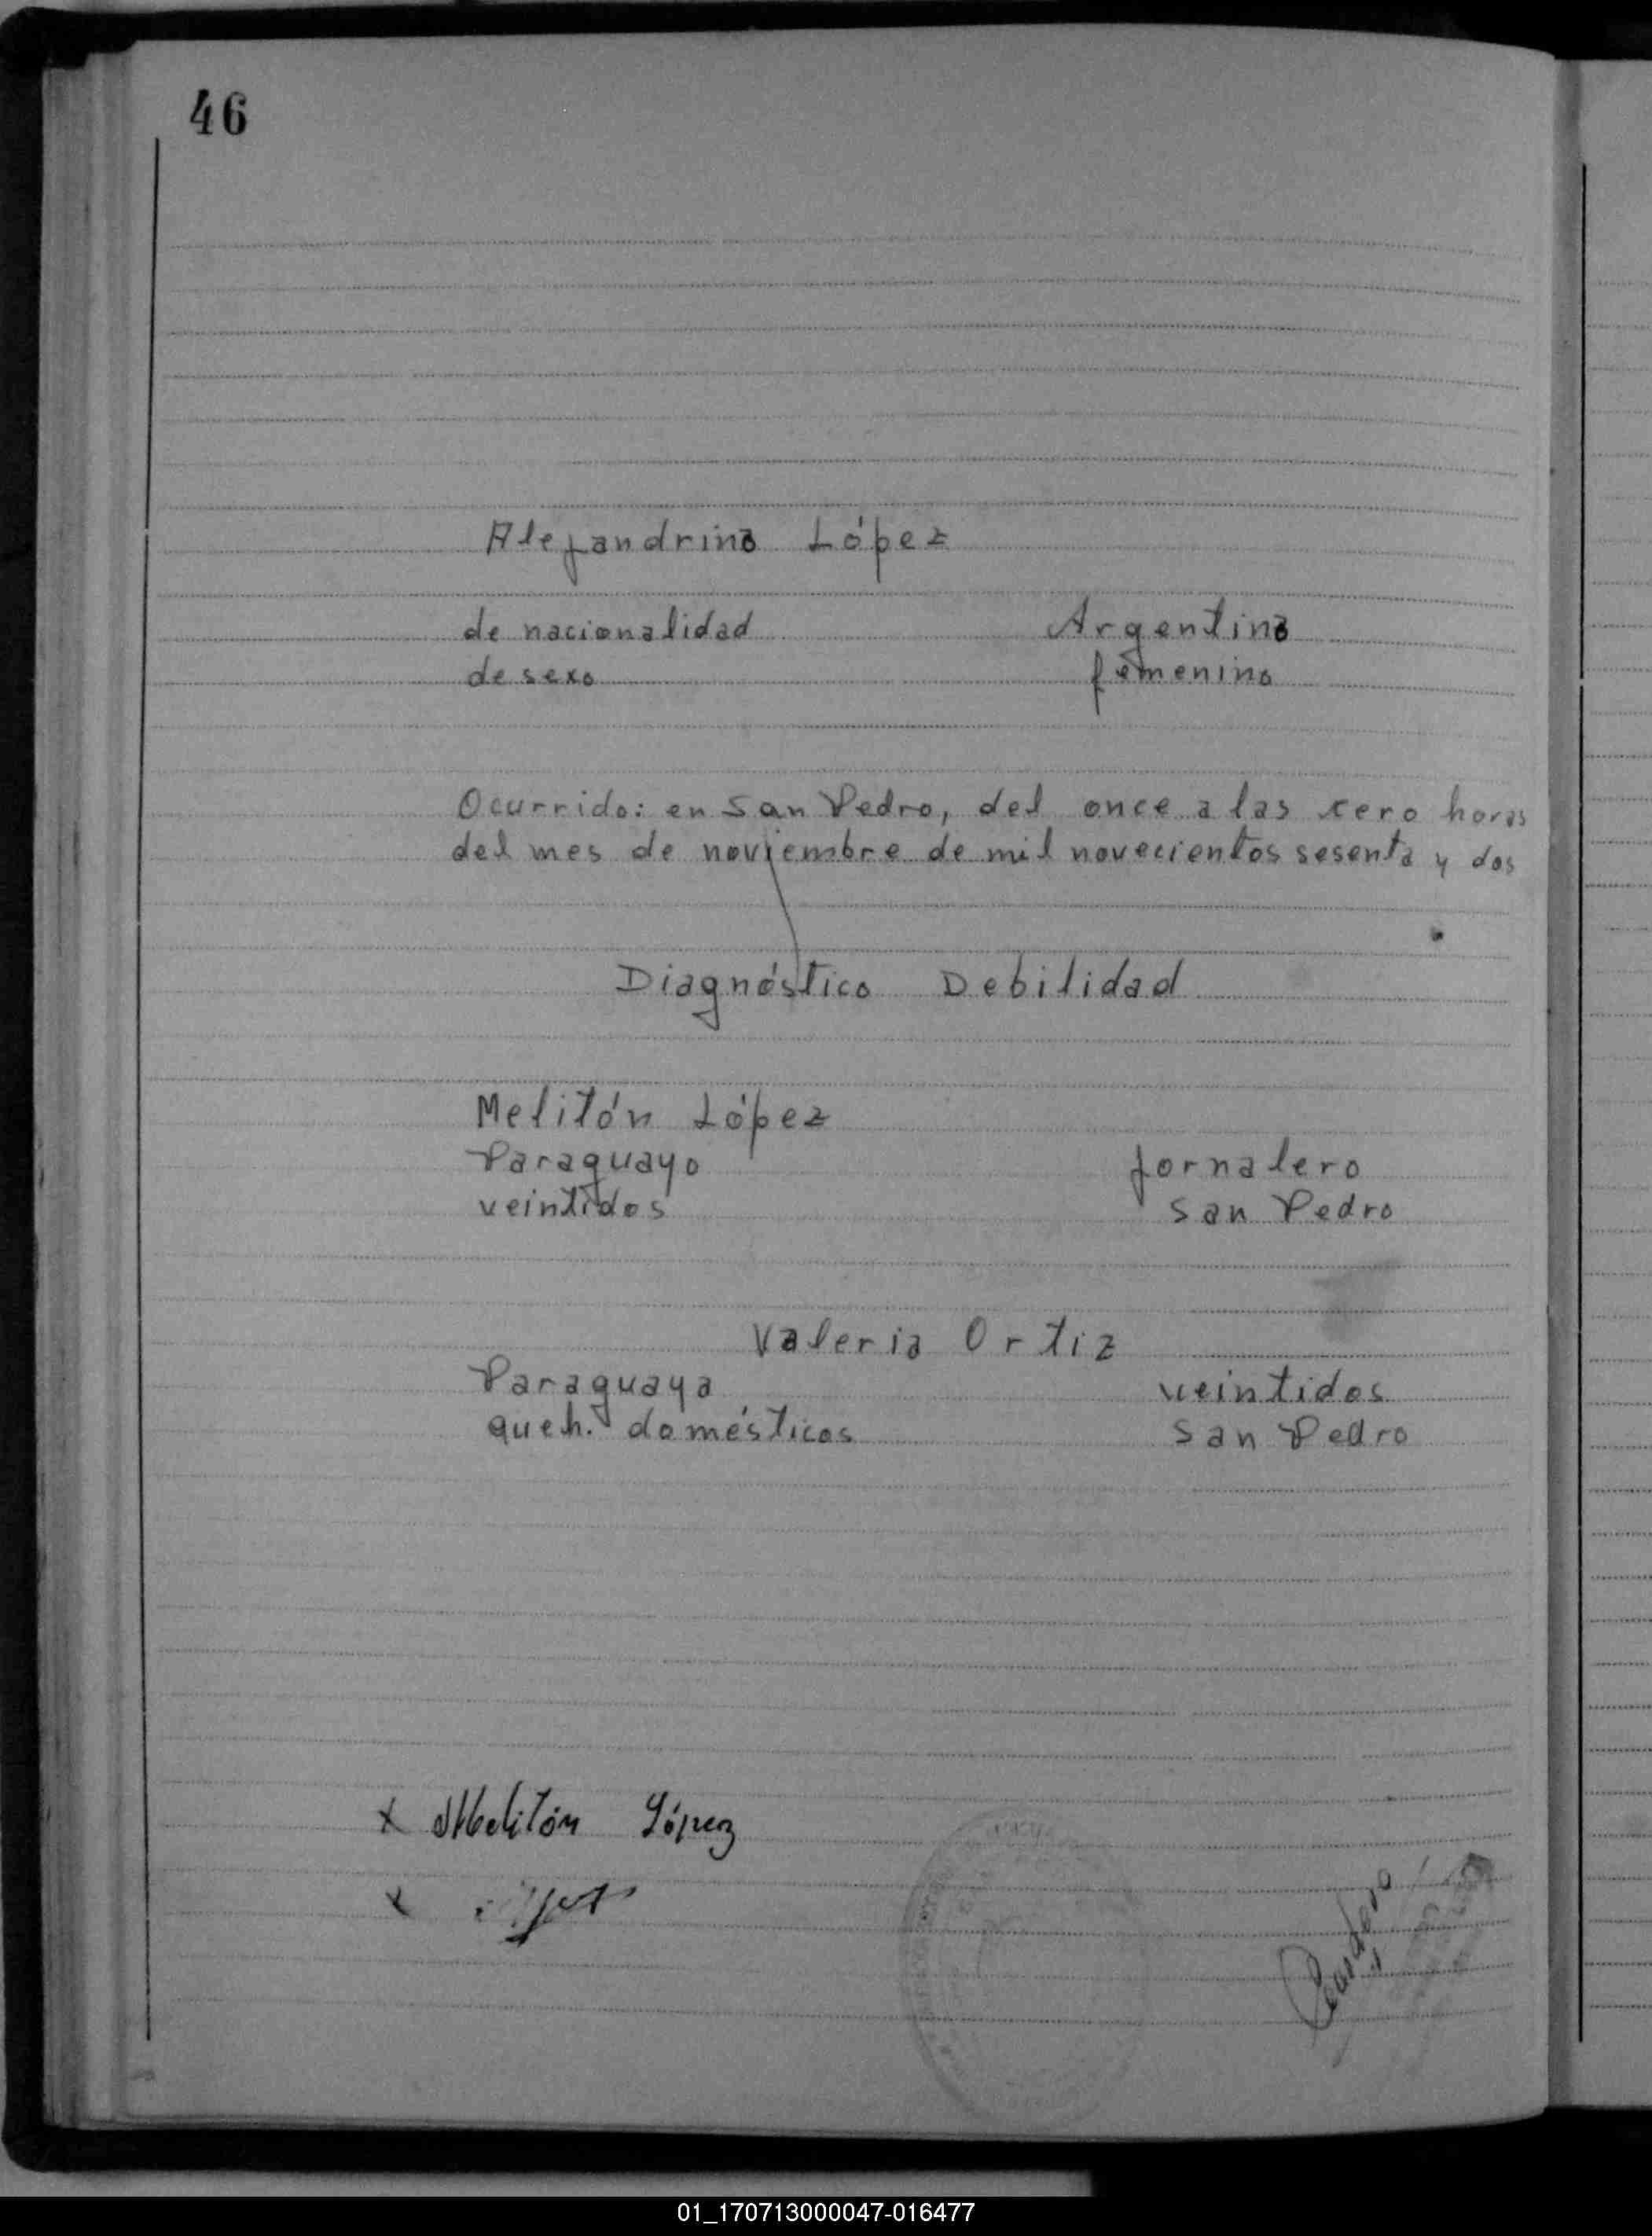 46
Alejandrina López
de nacionalidad Argentina
de sexo femenino
Ocurrido: en San Pedro, del once a las cero horas
del mes de noviembre de mil novecientos sesenta y dos
Diagnóstico Debilidad
Melitón López
Paraguayo jornalero
veintidos San Pedro
Valeria Ortiz
Paraguaya veintidos
queh. domésticos San Pedro
x Melitón López
x
01_170713000047-016477